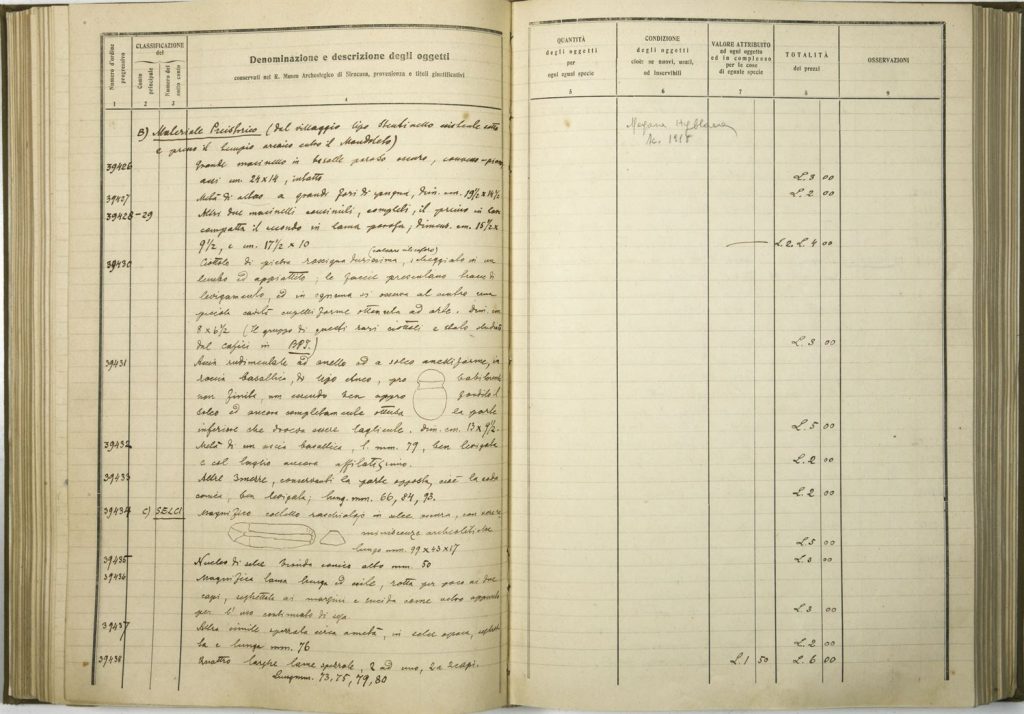 Numero d'ordine progressivo
CLASSIFICAZIONE del
Conto principale
Numero del sotto conto
Denominazione e descrizione degli oggetti
conservati nel R. Museo Archeologico di Siracusa, provenienza e titoli giustificativi
1 2 3 4
B) Materiale Preistorico (dal villaggio tipo Stentinello esistente sotto
e presso il tempio arcaico entro il Mandoleto)
39426 Grande macinello in basalto poroso oscuro,
assi cm. 24 x 14, intatto
39427 Metà di altro a grandi fori di spugna, dim. cm. 19 1/2 x 14 1/2
39428-29 Altri due macinelli consimili, completi, il primo in lava
compatta il secondo in lama porosa, dimens. cm. 15 1/2 x
9 1/2, e cm. 17 1/2 x 10
39430 Ciottolo di pietra rossigna durissima, scheggiato in un
lembo ed appiattito; le faccie presentano tracce di
levigamento, ed in ognuna si osserva al centro una
piccola cavità ottenuta ad arte. Dim. cm.
8 x 6 1/2 (Il gruppo di questi rari ciottoli è stato studiato
dal Cafici in BPI.)
39431 Ascia rudimentale ad anello ed a solco anelliforme, in
roccia basaltica, di tipo probabilmente
non finita, non essendo ben approfondito il
solco ed ancora completamente ottusa la parte
inferiore che doveva essere tagliente. dim. cm. 13 x 9 1/2.
39432 Metà di un ascia basaltica, l. mm. 79, ben levigata
e col taglio ancora affilatissimo.
39433 Altre 3 conservanti la parte opposta, cioè la coda
conica, ben levigata; lung. mm. 66, 84, 93.
39434 C) SELCI Magnifico coltello raschiatoio in selce oscura, con
reminiscenze archeolitiche
lungo mm. 99 x 43 x 17
39435 Nucleo di selce bionda conico alto mm. 50
39436 Magnifica lama lunga ed esile, rotta per poco ai due
capi, seghettata ai margini e lucida come vetro appunto
per l'uso continuato di sega.
39437 Altra simile spezzata circa a metà, in selce opaca, seghetta
ta e lunga mm. 76
39438 Quattro larghe lame spezzate, 2 ad uno, 2 a 2 capi.
Lung. mm. 73, 75, 79, 80
QUANTITÀ
degli oggetti
per
ogni egual specie
CONDIZIONE
degli oggetti
cioè: se nuovi, usati,
od inservibili
VALORE ATTRIBUITO
ad ogni oggetto
ed in complesso
per le cose
di eguale specie
TOTALITÀ
dei prezzi
OSSERVAZIONI
5 6 7 8 9
Megara Hyblaea
1918
L. 3 00
L. 2 00
L. 4 00
L. 3 00
L. 5 00
L. 2 00
L. 2 00
L. 5 00
L. 3 00
L. 3 00
L. 2 00
L. 1 50 L. 6 00